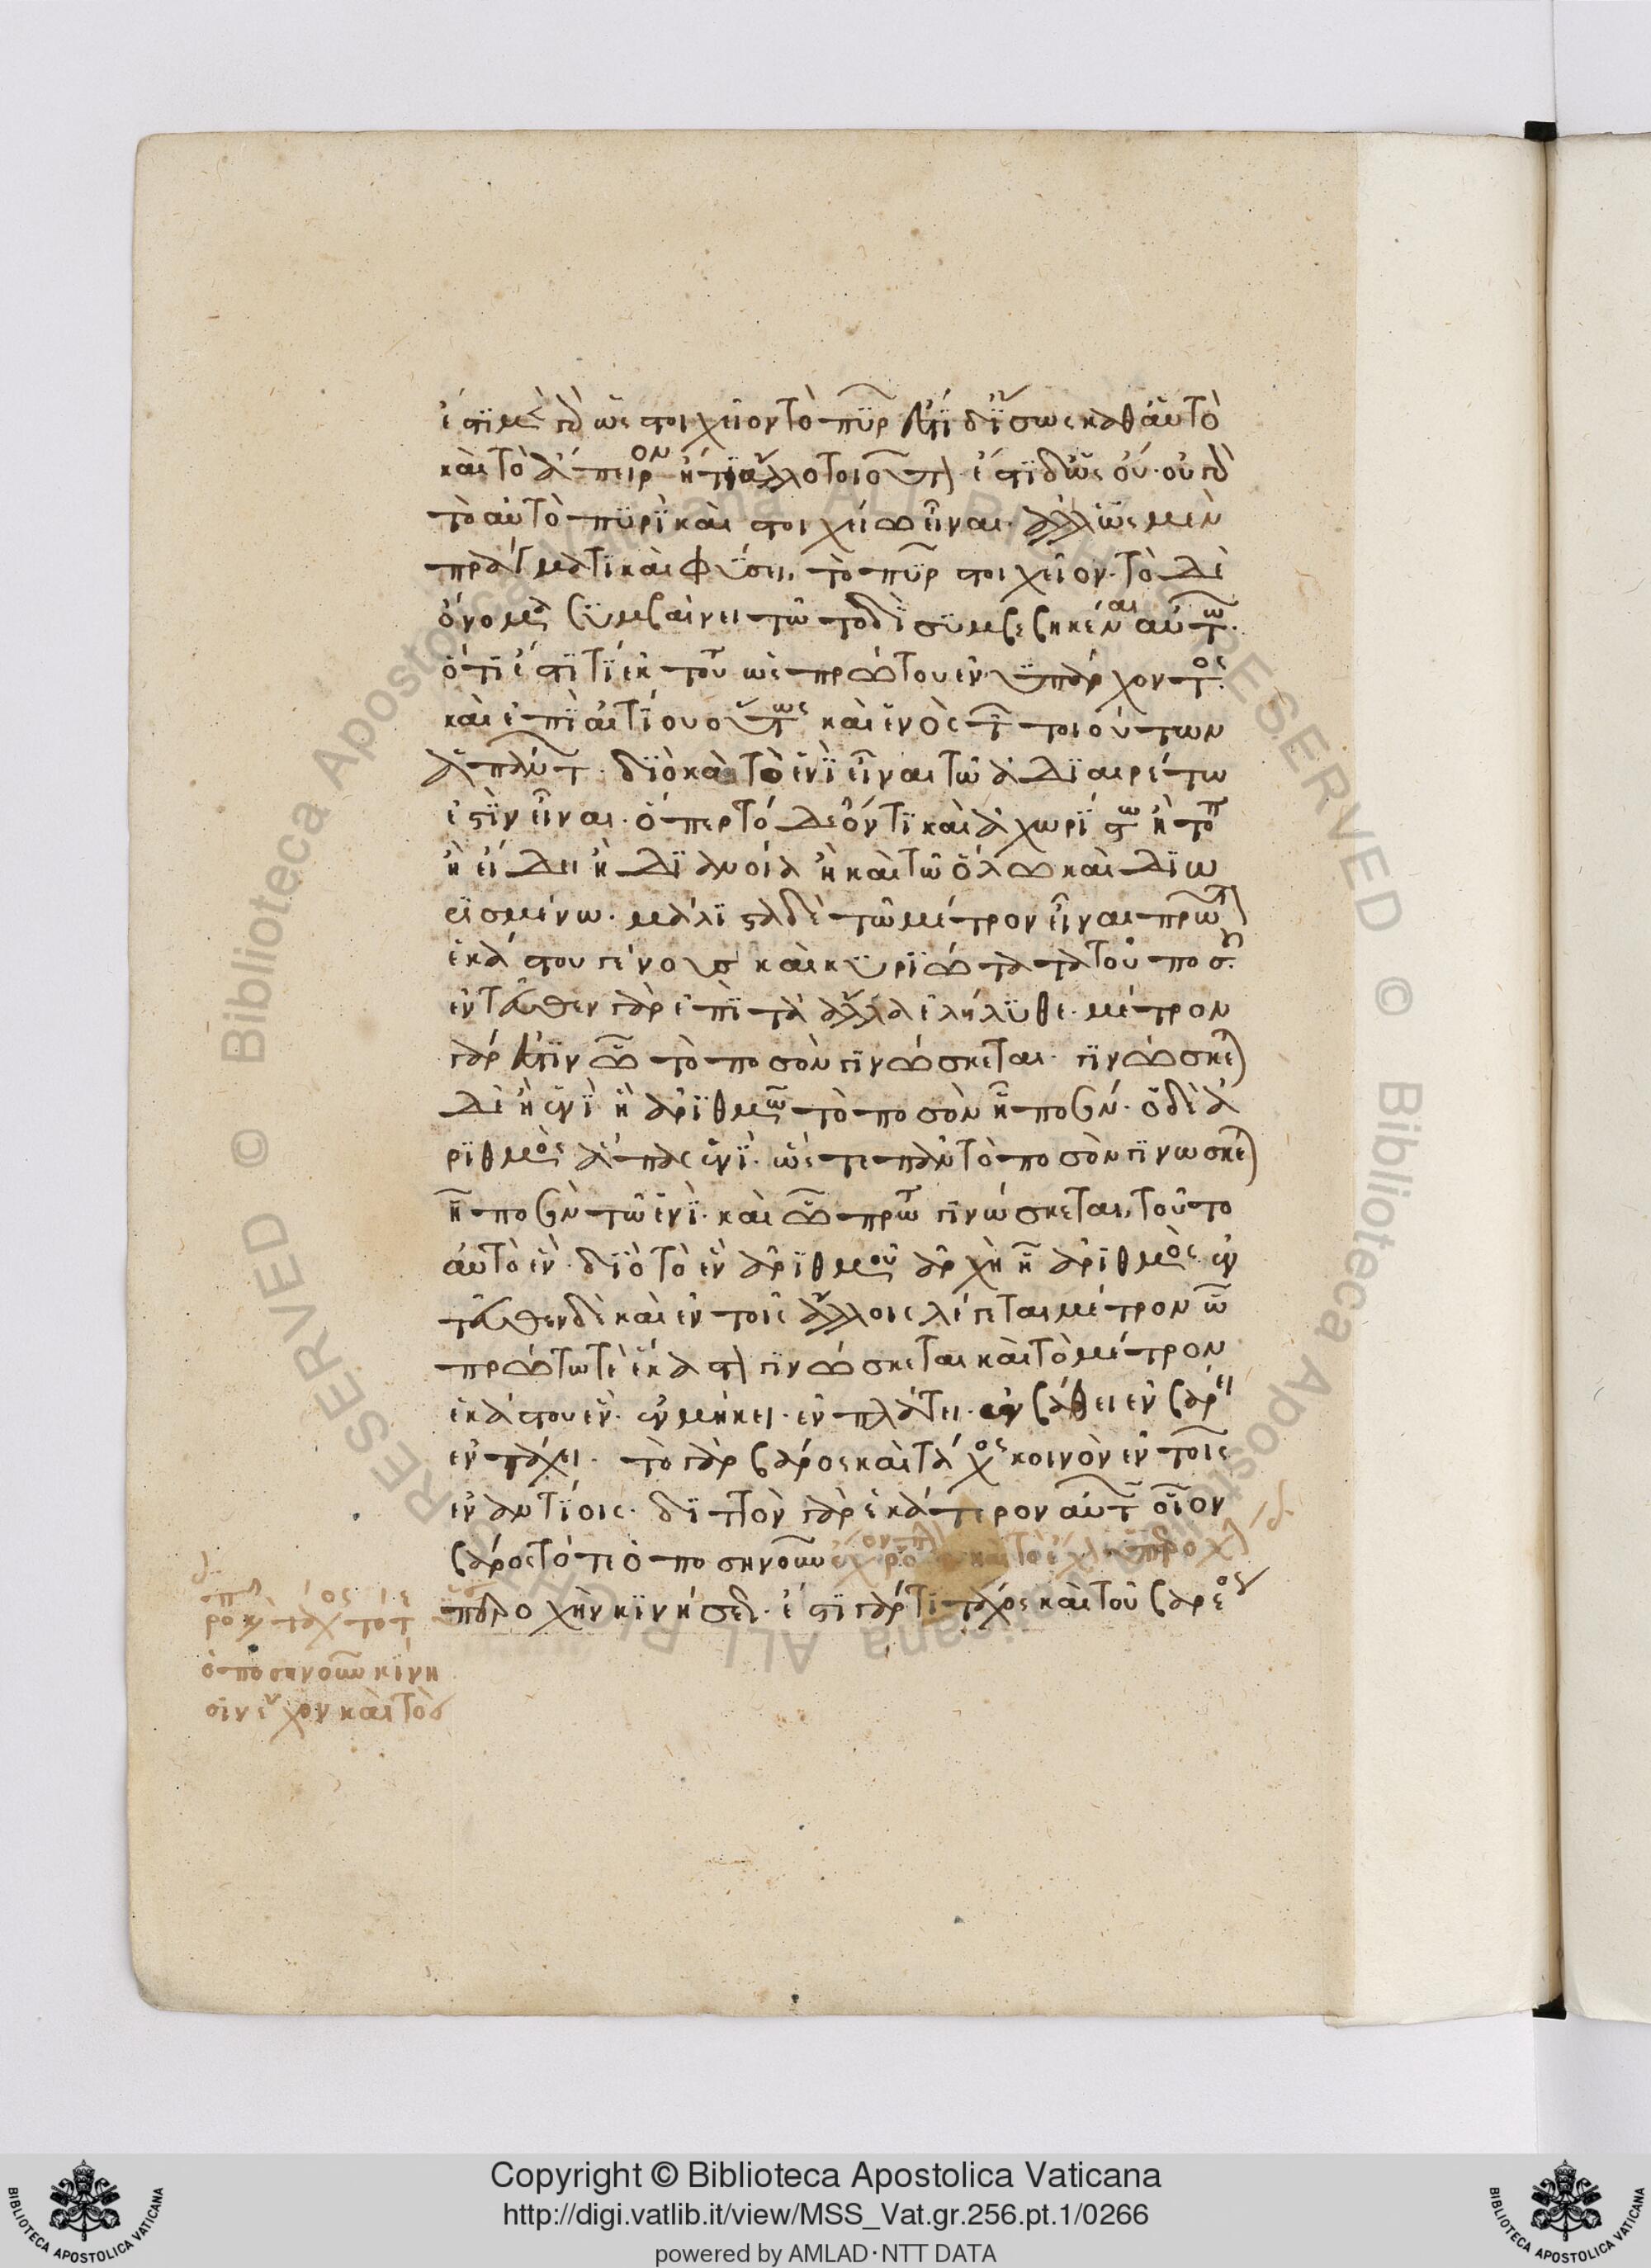 ἔστι μὲν γὰρ ὡς στοιχεῖον τὸ πῦρ ἔστι δ' ἴσως καθ' αὑτὸ
καὶ τὸ ἄπειρον ἤ τι ἄλλο τοιοῦτον ἔστι δ' ὡς οὔ· οὐ γὰρ
τὸ αὐτὸ πυρὶ καὶ στοιχείω εἶναι· ἀλλ' ὡς μὲν
πρᾶγμά τι καὶ φύσει, τὸ πῦρ στοιχεῖον. τὸ δὲ
ὄνομα συμβαίνει τῶ τοδὶ συμβεβηκέναι αὐτῶ·
ὅτι ἐστί τι ἐκ τοῦ ὡς πρώτου ἐνυπάρχοντος·
καὶ ἐπὶ αἰτίου οὕτως καὶ ἑνὸς τῶν τοιούτων
ἁπάντων· διὸ καὶ τὸ ἑνὶ εἶναι τῶ ἀδιαιρέτω
ἐστὶν εἶναι· ὅπερ τόδε ὄντι καὶ ἀχωρίστω ἢ τόπω
ἢ εἴδει ἢ διανοία ἢ καὶ τῶ ὅλω καὶ διω
ρισμένω· μάλιστα δὲ τῶ μέτρον εἶναι πρῶτον
ἑκάστου γένους καὶ κυριώτατα τοῦ ποσοῦ·
ἐντεῦθεν γὰρ ἐπὶ τὰ ἄλλα ἐλήλυθε· μέτρον
γάρ ἐστιν ὧ τὸ ποσὸν γινώσκεται· γινώσκεται
δὲ ἢ ἑνὶ ἢ ἀριθμῶ τὸ ποσὸν ἧ ποσόν· ὁ δὲ ἀ
ριθμὸς ἅπας ἑνί· ὥστε πᾶν τὸ ποσὸν γινώσκεται
ἧ ποσὸν τῶ ἑνί· καὶ ὧ πρώτω γινώσκεται, τοῦτο
αὐτὸ ἕν· διὸ τὸ ἓν ἀριθμοῦ ἀρχὴ ἧ ἀριθμός· ἐν
τεῦθεν δὲ καὶ ἐν τοῖς ἄλλοις λέγεται μέτρον ὧ
πρώτω τὲ ἕκαστον γινώσκεται καὶ τὸ μέτρον
ἑκάστου ἕν· ἐν μήκει· ἐν πλάτει· ἐν βάθει ἐν βάρει
ἐν τάχει· τὸ γὰρ βάρος καὶ τάχος κοινὸν ἐν τοῖς
ἐναντίοις· διττὸν γὰρ ἑκάτερον αὐτῶν οἷον
βάρος τό τε ὁποσηνοῦν ἔχον ῥοπὴν καὶ τὸ ἔχον ὑπεροχὴν
ῥοπῆς καὶ τάχος τό τε
ὁποσηνοῦν κίνη
σιν ἔχον καὶ τὸ
ὑπεροχὴν κινήσεως· ἔστι γάρ τι τάχος καὶ τοῦ βραδέος